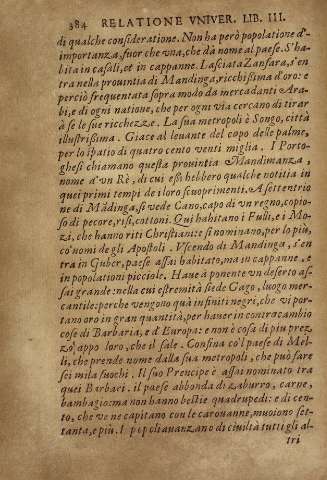 384 RELATIONE VNIVER. LIB. III.
di qualche consideratione. Non ha però popolatione d'
importanza, fuor che vna, che dà nome al paese. S'ha-
bita in casali, et in cappanne. Lasciata Zanfara, s'en
tra nella prouintia di Mandinga, ricchissima d'oro: e
perciò frequentata sopra modo da mercadanti Ara-
bi, e di ogni natione, che per ogni via cercano di tirar
à se le sue ricchezze. La sua metropoli è Songo, città
illustrissima. Giace al leuante del capo delle palme,
per lo spatio di quattro cento venti miglia. I Porto-
ghesi chiamano questa prouintia Mandimanza,
nome d'vn Rè, di cui essi hebbero qualche notitia in
quei primi tempi de i loro scuoprimenti. A settentrio
ne di Mãdinga, si vede Cano, capo di vn regno, copio-
so di pecore, risi, cottoni. Qui habitano i Fulli, e i Mo-
zi, che hanno riti Christiani: e si nominano, per lo piu,
co' nomi de gli Apostoli. Vscendo di Mandinga, s'en
tra in Guber, paese assai habitato, ma in cappanne, e
in popolationi picciole. Haue à ponente vn deserto as-
sai grande: nella cui estremità siede Gago, luogo mer-
cantile: perche vengono quà infiniti negri, che vi por-
tano oro in gran quantità, per hauer in contracambio
cose di Barbaria, e d'Europa: e non è cosa di piu prez
zo appo loro, che il sale. Confina co'l paese di Mel-
li, che prende nome dalla sua metropoli, che può fare
sei mila fuochi. Il suo Prencipe è assai nominato tra
quei Barbari. il paese abbonda di zaburro, carne,
bambagio: ma non hanno bestie quadrupedi: e di cen-
to, che ve ne capitano con le carouanne, muoiono set-
tanta, e piu. I popoli auanzano di ciuiltà tutti gli al-
tri